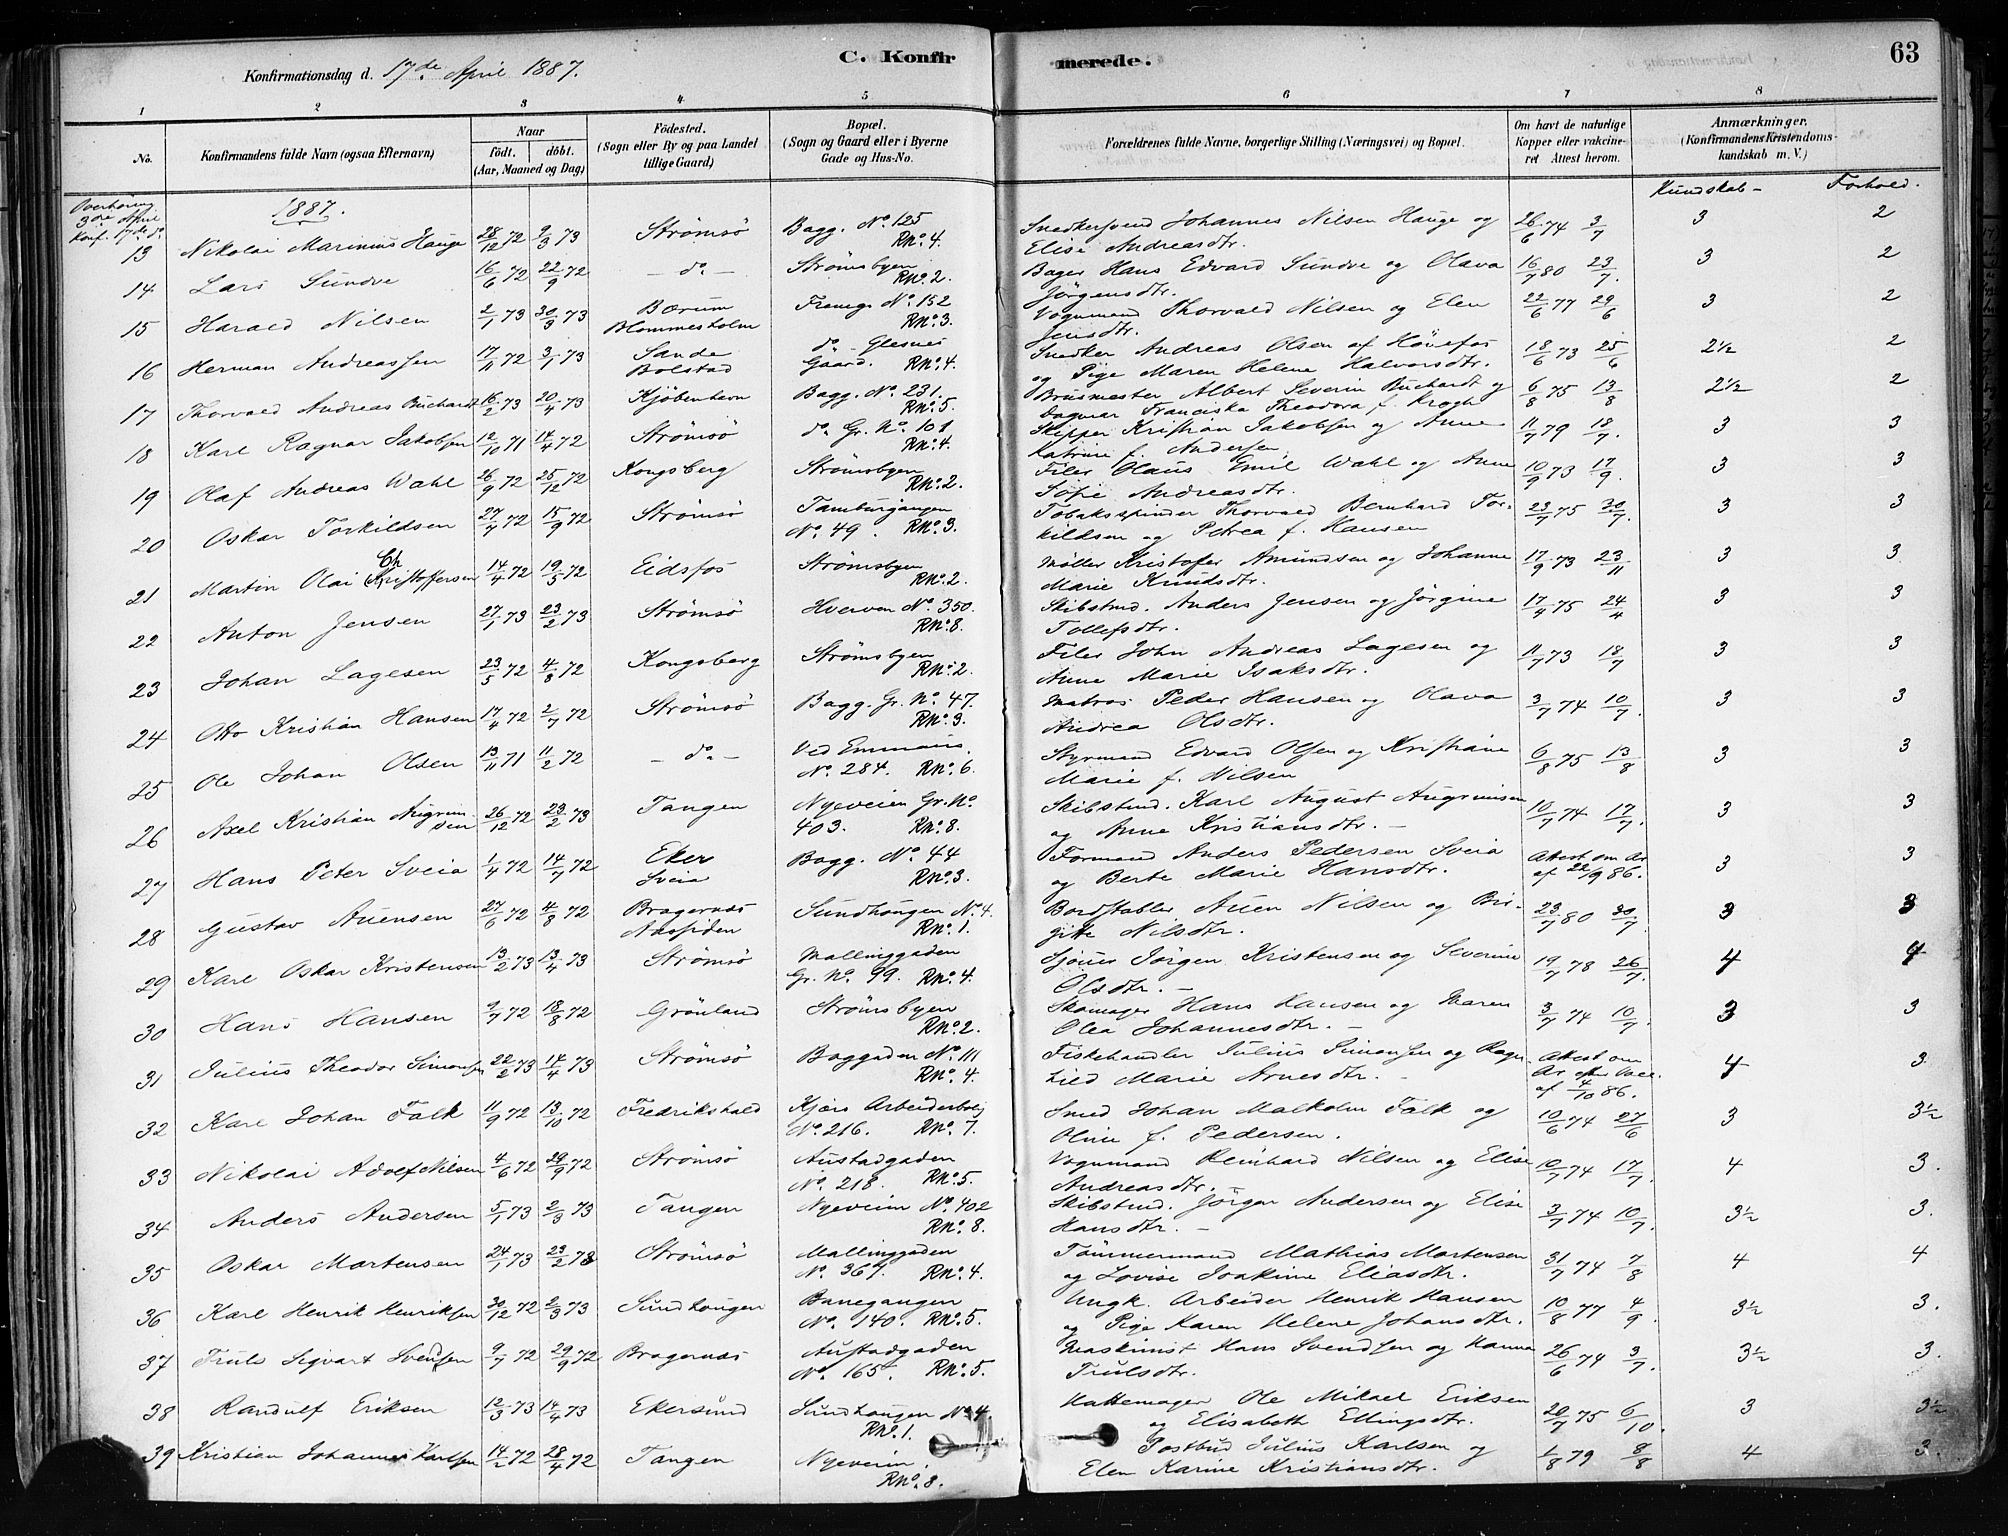 63
C. Konfirmerede.
Konfirmationsdag d. 17de April 1887.
1 2 3 4 5 6 7 8
No. Konfirmandens fulde Navn (ogsaa Efternavn) Naar födt. döbt. (Aar, Maaned og Dag) Födested. (Sogn eller By og paa Landet tillige Gaard) Bopæl. (Sogn og Gaard eller i Byerne Gade og Hus-No. Forældrenes fulde Navne, borgerlige Stilling (Næringsvei) og Bopæl. Om havt de naturlige Kopper eller vakcineret Attest herom. Anmærkninger. (Konfirmandens Kristendomskundskab m. V.)
Kundskab – Forhold.
Overhöring 3die April Konf. 17de do
1887.
13 Nikolai Marinius Hauge 28/12 72 9/3 73 Strömsö Bagg. No. 125 RNo. 4. Snedkersvend Johannes Nilsen Hauge og Elise Andreasdtr. 26/6 74 3/7 3 2
14 Lars Sundve 16/6 72 22/9 72 – do – Strömsbyen RNo. 2. Bager Hans Edvard Sundve og Olava Jörgensdtr. 16/7 80 23/7 3 2
15 Harald Nilsen 2/1 73 30/3 73 Bærum Blommesholm Fremg. No. 152 RNo. 3. Vognmand Thorvald Nilsen og Elen Jensdtr. 22/6 77 29/6 3 2
16 Herman Andreassen 17/11 72 3/1 73 Sande Bolstad do Glesnes Gaard. RNo. 4. Snedker Andreas Olsen af Hönefos og Pige Maren Helene Halvorsdtr. 18/6 73 25/6 2½ 2
17 Thorvald Andreas Buchardt 16/2 73 20/4 73 Kjöbenhavn Bagg. No. 231. RNo. 5. Brusmester Albert Severin Buchardt og Dagmar Franciska Theodora f. Krogh 6/8 75 13/8 2½ 2
18 Karl Ragnar Jakobsen 12/10 71 14/4 72 Strömsö do Gr. No. 101 RNo. 4. Skipper Kristian Jakobsen og Anne Katrine f. Andersen. 11/7 79 18/7. 3 3
19 Olaf Andreas Wahl 26/9 72 25/12 72 Kongsberg Strömsbyen RNo. 2. Filer Olaus Emil Wahl og Anne Sofie Andreasdtr. 10/9 73 17/9. 3 3
20 Oskar Torkildsen 27/7 72 15/9 72 Strömsö Tamburgangen No. 49. RNo. 3. Tobakspinder Thorvald Bernhard Torkildsen og Petrea f. Hansen 23/7 75 30/7. 3 3
21 Martin Olai Ch Kristoffersen 14/4 72 19/5 72 Eidsfos Strömsbyen RNo. 2. Möller Kristofer Amundsen og Johanne Marie Knudsdtr. 17/9 73 23/11 3 3
22 Anton Jensen 27/1 73 23/2 73 Strömsö Hverven No. 350. RNo. 8. Skibstmd. Anders Jensen og Jörgine Tollefsdtr. 17/4 75 24/4 3 3
23 Johan Lagesen 23/5 72 4/8 72 Kongsberg Strömsbyen RNo. 2. Filer John Andreas Lagesen og Anne Marie Isaksdtr. 11/7 73 18/7 3 3
24 Otto Kristian Hansen 17/4 72 2/7 72 Strömsö Bagg. Gr. No. 47. RNo. 3. Matros Peder Hansen og Olava Andrea Olsdtr. 3/7 74 10/7. 3 3
25 Ole Johan Olsen 13/11 71 11/2 72 – do – Ved Emmaus. No. 284. RNo. 6. Styrmand Edvard Olsen og Kristiane Marie f. Nilsen 6/8 75 13/8 3 3
26 Axel Kristian Augrimsen 26/12 72 23/2 73 Tangen Nyeveien Gr. No 403. RNo. 8. Skibstmd. Karl August Augrimsen og Anne Kristiansdtr. – 10/7 74 17/7. 3 3
27 Hans Peter Sveia 1/4 72 14/7 72 Eker Sveia Bagg. No. 44 RNo. 3. Formand Anders Pedersen Sveia og Berte Marie Hansdtr. Attest om Ar af 22/9 86. 3 3
28 Gustav Auensen 27/6 72 4/8 72 Bragernæs Næssiden Sundhaugen No. 4. RNo. 1. Bordstabler Auen Nilsen og Birgitte Nilsdtr. 23/7 80 30/7 3 3
29 Karl Oskar Kristensen 13/2 73 13/4 73 Strömsö Mallinggaden Gr. No. 99. RNo. 4. Sjöuer Jörgen Kristensen og Severine Olsdtr. – 19/7 78 26/7 4 4
30 Hans Hansen 9/7 72 18/8 72 Grönland Strömsbyen RNo. 2. Skomager Hans Hansen og Maren Olea Johannesdtr. – 3/7 74 10/7. 3 3
31 Julius Theodor Simonsen 22/2 73 14/4 73 Strömsö Baggaden No. 111 RNo. 4. Fiskehandler Julius Simonsen og Ragnhild Marie Arnesdtr. – Attest om Ar efter Vacc. af 4/10 86. 4 3.
32 Karl Johan Falk 11/9 72 13/10 72 Fredrikshald Kjærs Arbeiderbolig No. 216. RNo. 7. Smed Johan Malkolm Falk og Oline f. Pedersen. 10/6 74 27/6 3 3½
33 Nikolai Adolf Nilsen 4/6 72 29/9 72 Strömsö Austadgaden No. 218. RNo. 5. Vognmand Reinhard Nilsen og Elise Andreasdtr. 10/7 74 17/7. 4 3.
34 Anders Andersen 5/1 73 2/3 73 Tangen Nyeveien No. 402 RNo. 8. Skibstmd. Jörgen Andersen og Elise Hansdtr. – 3/7 74 10/7. 3½ 3.
35 Oskar Martensen 24/1 73 23/2 73 Strömsö Mallinggaden No. 367. RNo. 4. Tömmermand Mathias Martensen og Lovise Joakime Eliasdtr. 31/7 74 7/8 4 4
36 Karl Henrik Henriksen 30/12 72 2/3 73 Sundhaugen Banegangen No. 140. RNo. 5. Ungk. Arbeider Henrik Hansen og Pige Karen Helene Johansdtr. 10/8 77 4/9. 3½ 3.
37 Truls Sigvart Svendsen 9/7 72 29/9 72 Bragernæs Austadgaden No. 165. RNo. 5. Maskinist Hans Svendsen og Hanna Trulsdtr. 26/6 74 3/7. 3½ 3.
38 Randulf Eriksen 12/3 73 14/4 73 Ekersund Sundhaugen No. 4. RNo. 1. Hattemager Ole Mikael Eriksen og Elisabeth Ellingsdtr. 20/7 75 6/10. 3 3½
39 Kristian Johannes Karlsen 14/2 72 28/4 72 Tangen Nyeveien. RNo. 8. Postbud Julius Karlsen og Elen Karine Kristiansdtr. 1/8 79 8/8 4 3.